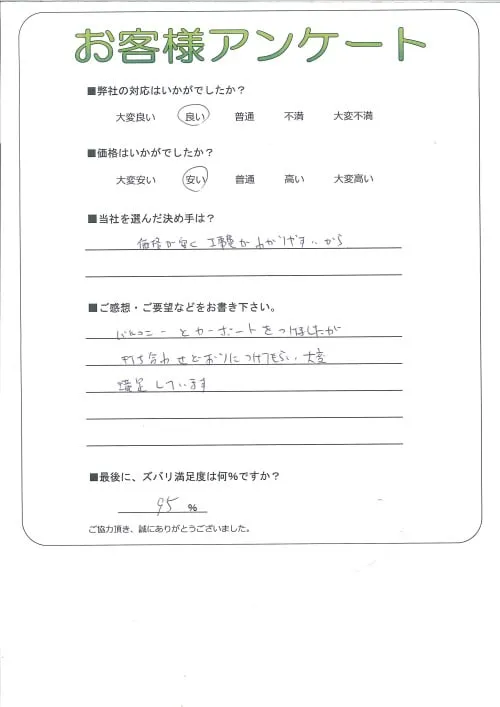 お客様アンケート
■弊社の対応はいかがでしたか?
大変良い 良い 普通 不満 大変不満
■価格はいかがでしたか?
大変安い 安い 普通 高い 大変高い
■当社を選んだ決め手は?
価格が安く 工事費がわかりやすいから
■ご感想・ご要望などをお書き下さい。
バルコニーとカーポートをつけましたが
打ち合わせどおりにつけてもらい 大変
満足しています
■最後に、ズバリ満足度は何%ですか?
95 %
ご協力頂き、誠にありがとうございました。